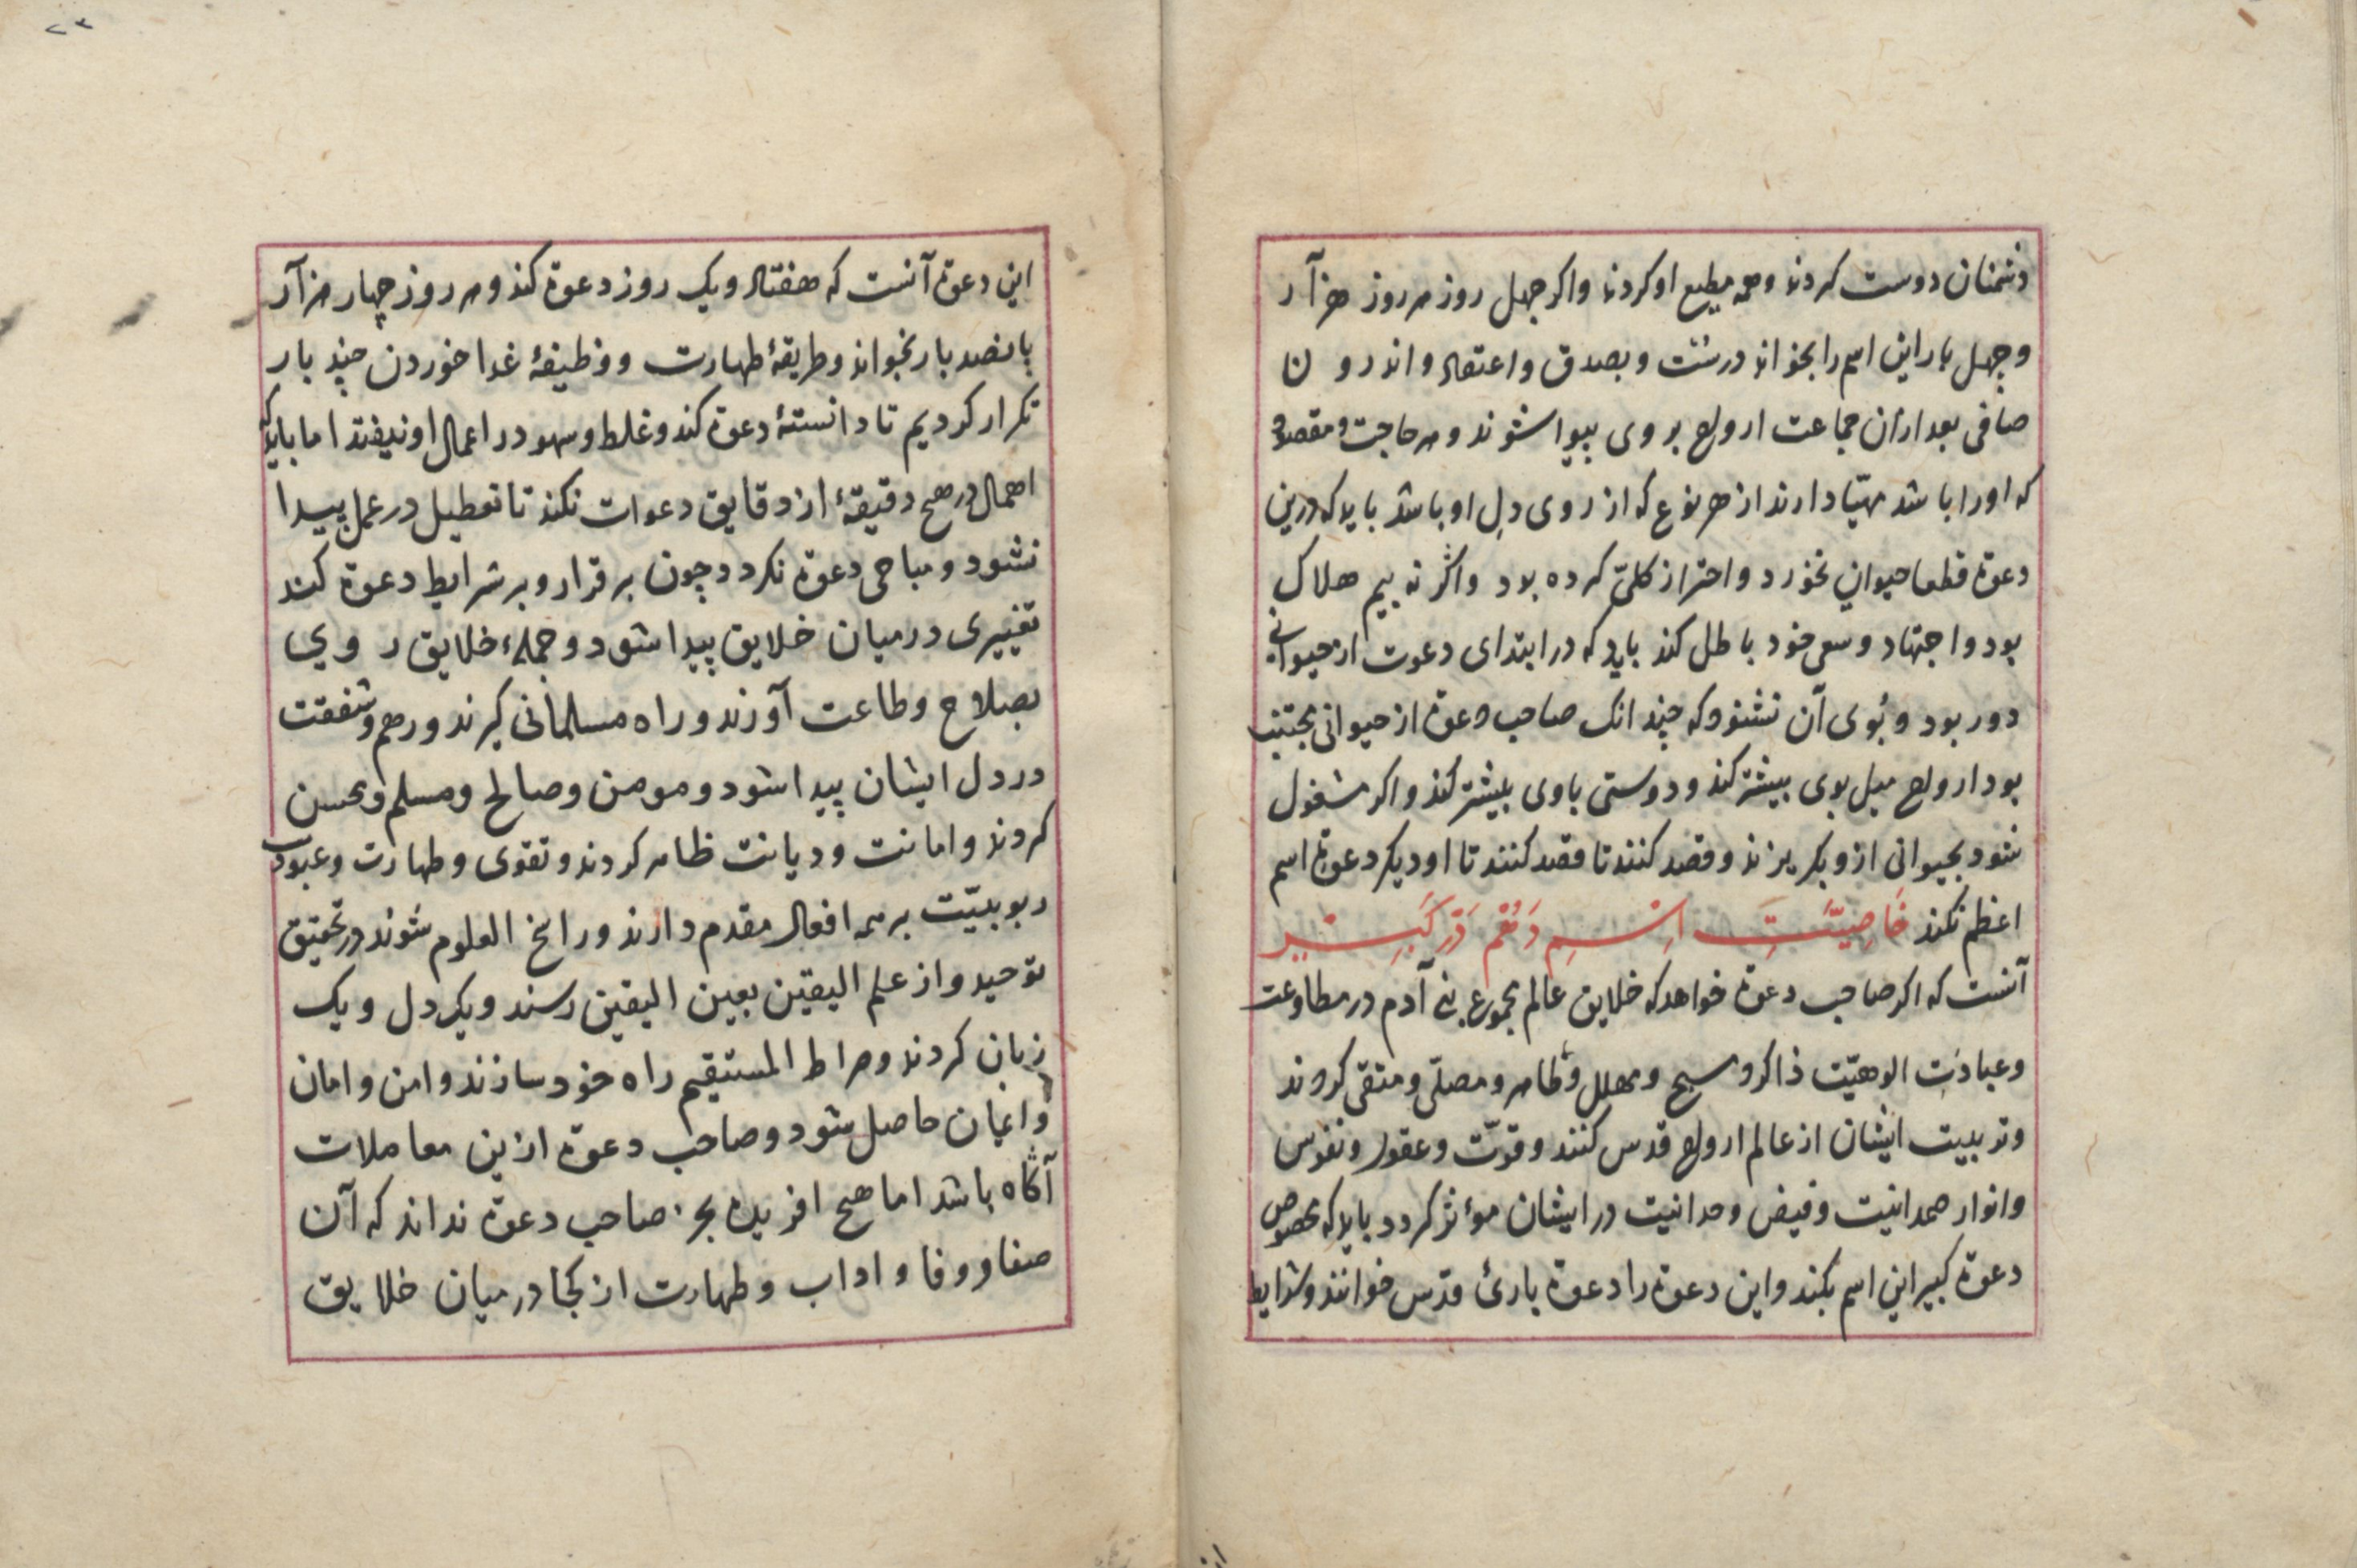 دشمنان دوست کردند وهمه مطیع او کردند واکر جهل روز هر روز هزآر
وجهل بار این اسم را بخواند درست وبصدق واعتقاد واندرون
صافی بعد ازان جماعت ارواح بروی پیدا شوند وهر حاجت ومقصود
که اورا باشد مهیّا دارند از هر نوع که از روی دل او باشد باید که درین
دعوة قطعا حیوانی نخورد واحتراز کلیّ کرده بود واکر نه بیم هلاک
بود واجتهاد وسعی خود باطل کند باید که در ابتدای دعوت از حیوانی
دور بود وبوی آن نشنود که چندانک صاحب دعوة از حیوانی مجتنب
بود ارواح میل بوی بیشتر کند ودوستی باوی بیشتر کند واکر مشغول
شود بحیوانی ازو بکریزند وقصد کنند تا قصد کنند تا او دیکر دعوة اسم
اعظم نکند خَاصِیَّتِ اِسْمِ دَر کَبِیر
آنست که اکر صاحب دعوة خواهد که خلایق عالم مجموع بنی آدم در مطاوعت
وعبادَت الوهیّت ذاکر ومسبح ومهلل وطاهر ومصلّی ومتقی کردند
وتربیت ایشان از عالم ارواح قدس کنند وقوّت وعقول ونفوس
وانوار صمدانیت وفیض وحدانیت در ایشان مؤثر کردد باید که بخصوص
دعوة کبیر این اسم بکند واین دعوة را دعوة باریٔ قدّس خوانند وشرایط
این دعوة آنست که هفتاد ویک روز دعوة کند وهر روز چهار هزآر
پانصد بار بخواند وطریقهٔ طهارت ووظیفهٔ غدا خوردن چند بار
تکرار کردیم تا دانستهٔ دعوة کند وغلط وسهو در اعمال او نیفتد اما باید که
اهمال در هیچ دقیقهٔ از دقایق دعوات نکند تا تعطیل در عمل پیدا
نشود ومباحی دعوة نکردد چون برقرار وبر شرایط دعوة کند
تغییری در میان خلایق پیدا شود وجملهٔ خلایق روی
بصلاح وطاعت آورند وراه مسلمانی کیرند ورحم وشفقت
در دل ایشان پیدا شود ومومن وصالح ومسلم ومحسن
کردند وامانت ودیانت ظاهر کردند وتقوی وطهارت وعبودیت
ربوبیّت بر همه افعال مقدم دارند وراسخ العلوم شوند در تحقیق
توحید واز علم الیقین بعین الیقین رسند ویک دل ویک
زبان کردند وصراط المستقیم راه خود سازند وامن وامان
وایمان حاصل شود وصاحب دعوة ازین معاملات
آکاه باشد اما هیچ افریده بجز صاحب دعوة نداند که آن
صفا ووفا واداب وطهارت از کجا در میان خلایق